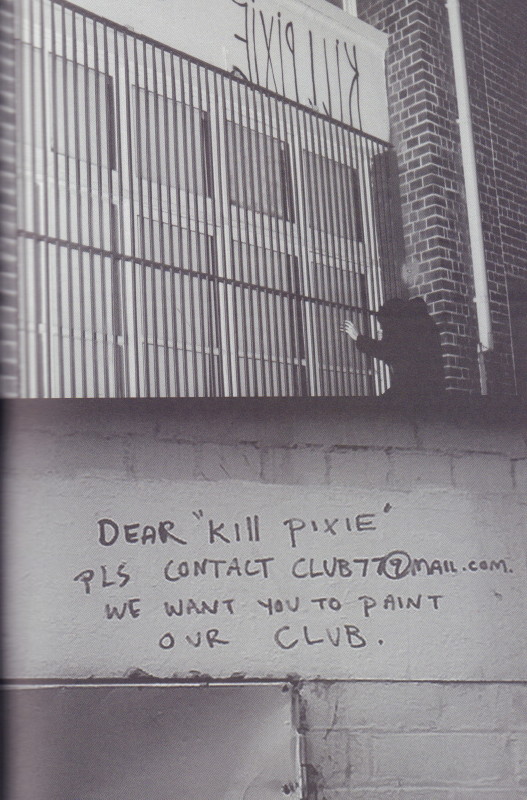 KILL PIXIE
DEAR "KILL PIXIE"
PLS CONTACT CLUB77@MAIL.COM.
WE WANT YOU TO PAINT
OUR CLUB.